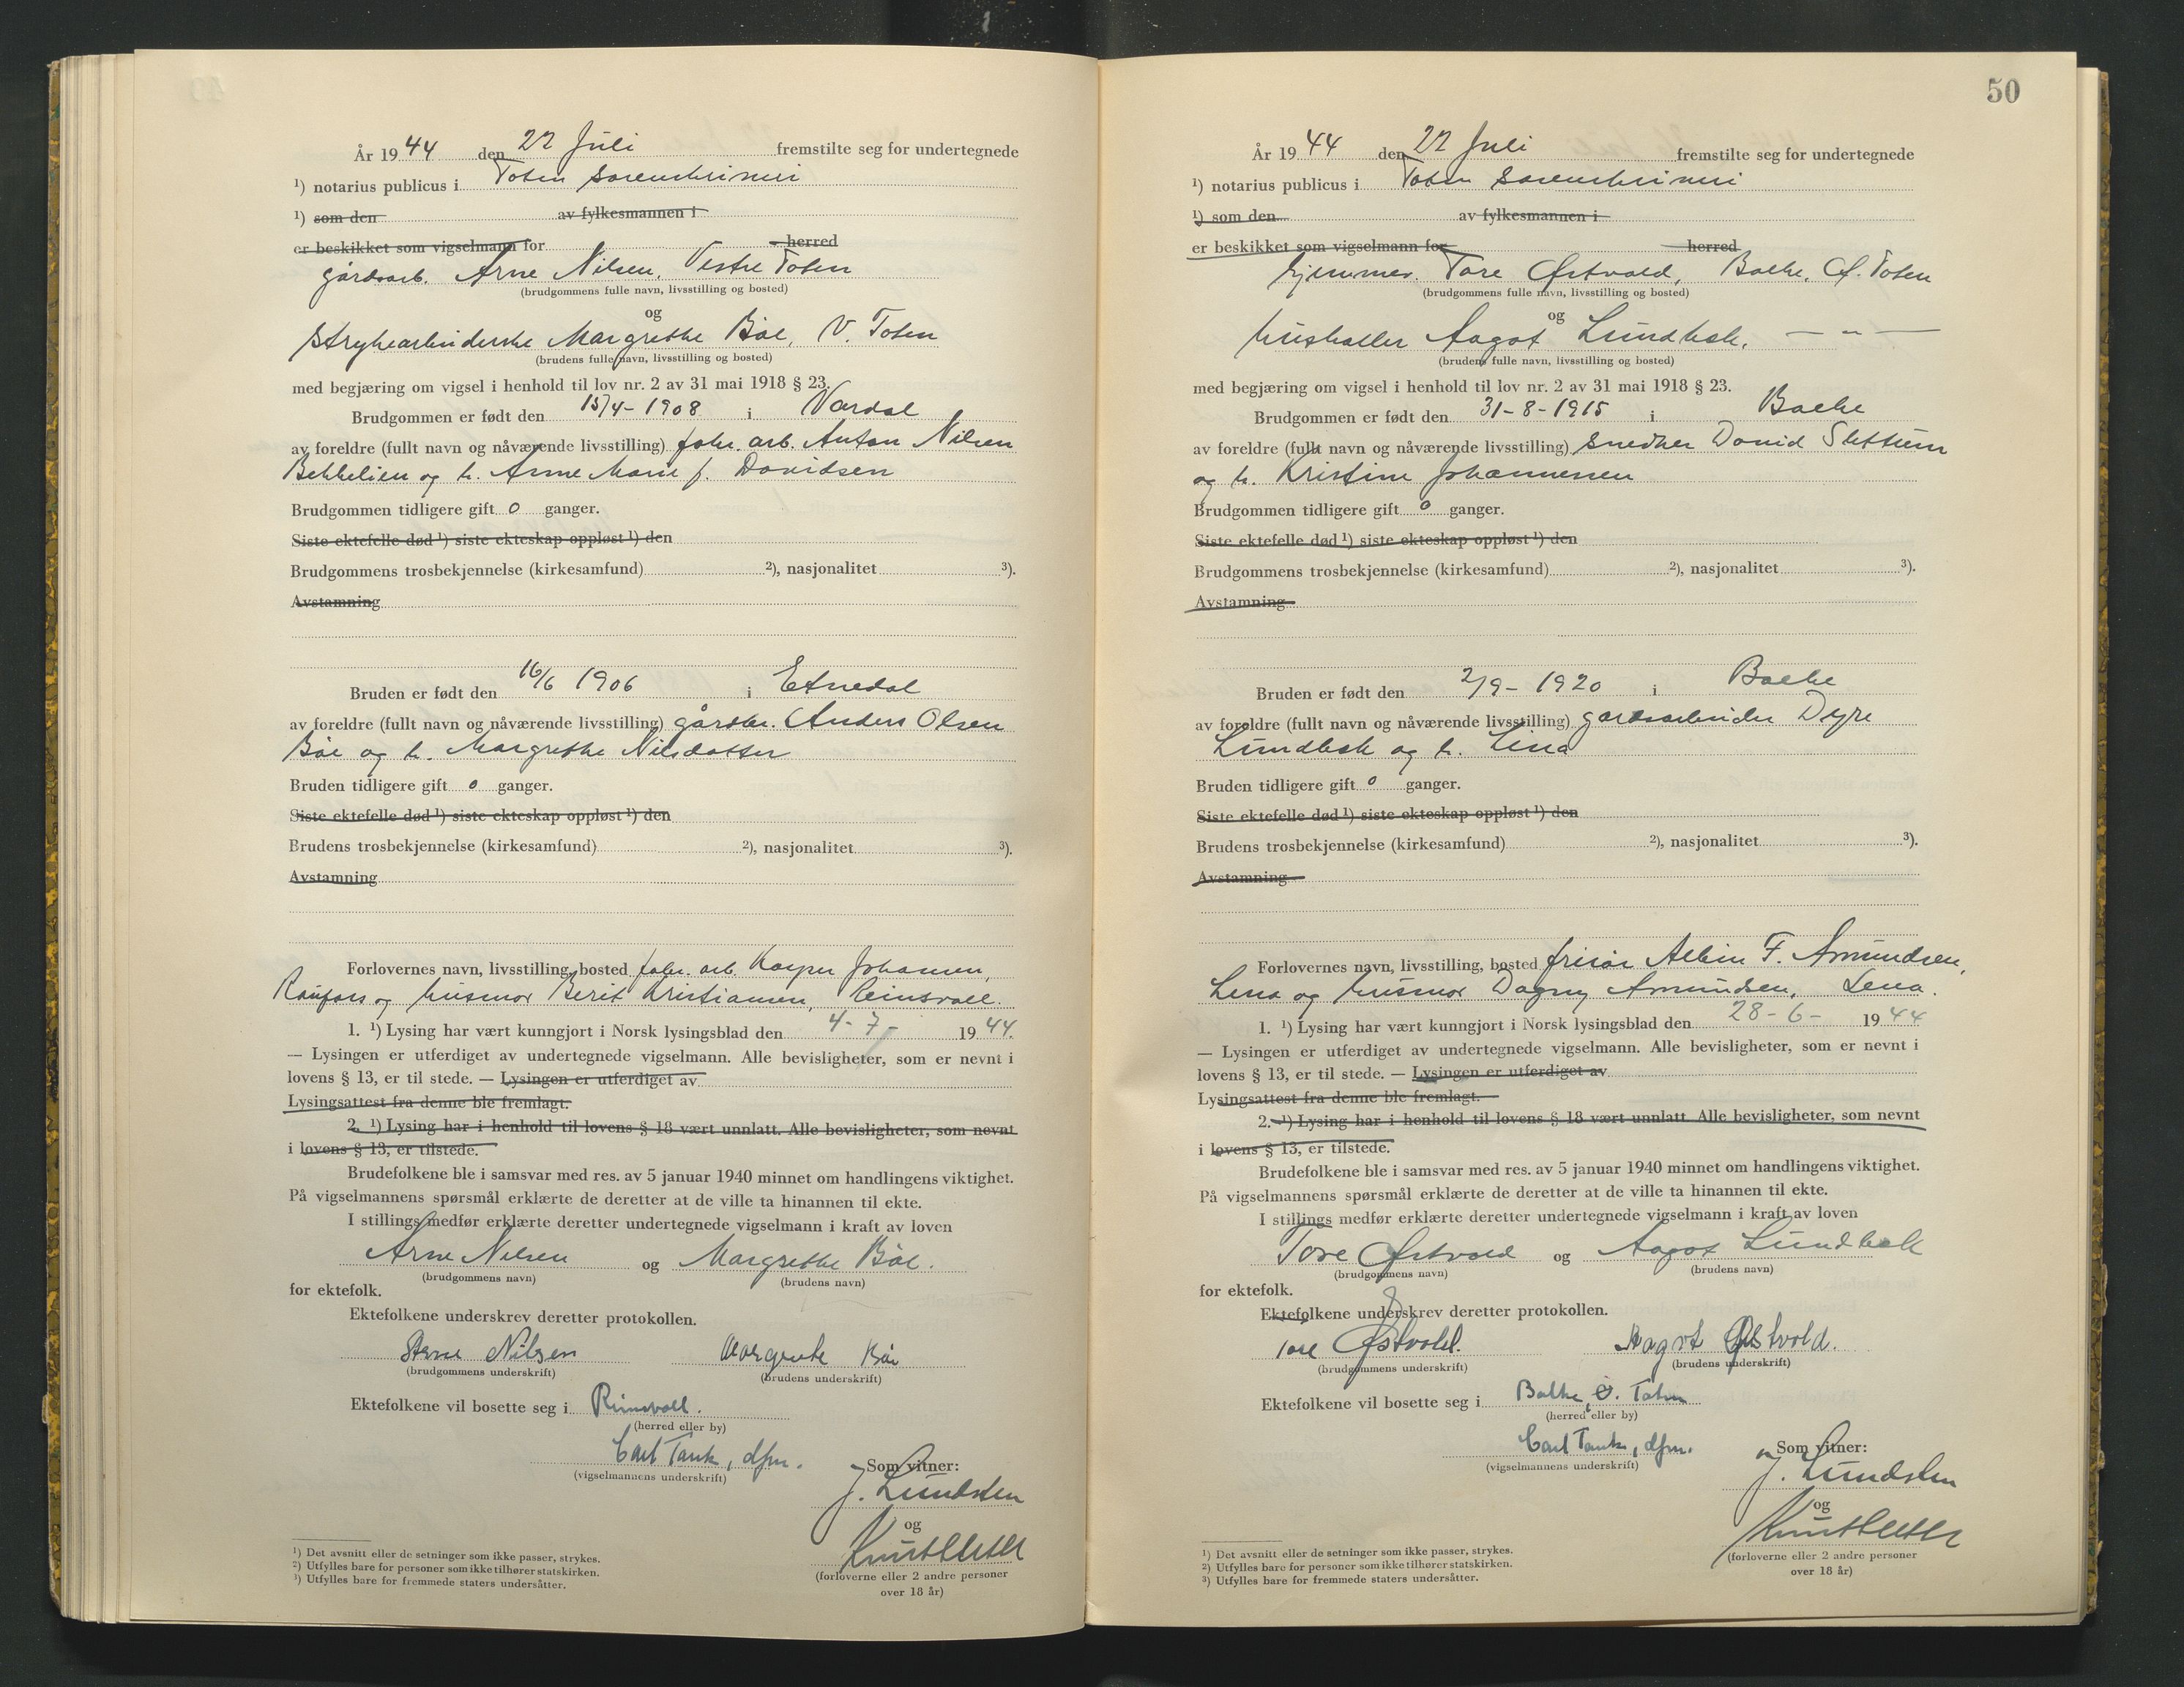 År 19 44 den 22 Juli fremstilte seg for undertegnede
¹) notarius publicus i Toten sorenskriveri
¹) som den av fylkesmannen i
er beskikket som vigselmann for herred
gårdsarb. Arne Nilsen, Vestre Toten
(brudgommens fulle navn, livsstilling og bosted)
og
strykearbeiderske Margrethe Bøe, V. Toten
(brudens fulle navn, livsstilling og bosted)
med begjæring om vigsel i henhold til lov nr. 2 av 31 mai 1918 § 23.
Brudgommen er født den 15/4- 1908 i Vardal
av foreldre (fullt navn og nåværende livsstilling) fabr. arb. Anton Nilsen
Bekkelien og h. Anne Marie f. Davidsen
Brudgommen tidligere gift 0 ganger.
Siste ektefelle død ¹) siste ekteskap oppløst ¹) den
Brudgommens trosbekjennelse (kirkesamfund) ²), nasjonalitet ³).
Avstamning
Bruden er født den 16/6 1906 i Etnedal
av foreldre (fullt navn og nåværende livsstilling) gårdbr. Anders Olsen
Bøe og h. Margrethe Nilsdatter
Bruden tidligere gift 0 ganger.
Siste ektefelle død ¹) siste ekteskap oppløst ¹) den
Brudens trosbekjennelse (kirkesamfund) ²), nasjonalitet ³).
Avstamning
Forlovernes navn, livsstilling, bosted fabr. arb. Kasper Johansen,
Raufoss og husmor Berit Kristiansen, Reinsvoll.
1. ¹) Lysing har vært kunngjort i Norsk lysingsblad den 4-7- 19 44.
— Lysingen er utferdiget av undertegnede vigselmann. Alle bevisligheter, som er nevnt i
lovens § 13, er til stede. — Lysingen er utferdiget av
Lysingsattest fra denne ble fremlagt.
2. ¹) Lysing har i henhold til lovens § 18 vært unnlatt. Alle bevisligheter, som nevnt
i lovens § 13, er tilstede.
Brudefolkene ble i samsvar med res. av 5 januar 1940 minnet om handlingens viktighet.
På vigselmannens spørsmål erklærte de deretter at de ville ta hinannen til ekte.
I stillings medfør erklærte deretter undertegnede vigselmann i kraft av loven
Arne Nilsen og Margrethe Bøe.
(brudgommens navn) (brudens navn)
for ektefolk.
Ektefolkene underskrev deretter protokollen.
Arne Nilsen Margrete Bøe
(brudgommens underskrift) (brudens underskrift)
Ektefolkene vil bosette seg i Reinsvoll.
(herred eller by)
Carl Tank, dfm.
(vigselmannens underskrift)
Som vitner:
J. Lundsten
og
(forloverne eller 2 andre personer
over 18 år)
¹) Det avsnitt eller de setninger som ikke passer, strykes.
²) Utfylles bare for personer som ikke tilhører statskirken.
³) Utfylles bare for fremmede staters undersåtter.
50
År 19 44 den 22 Juli fremstilte seg for undertegnede
¹) notarius publicus i Toten sorenskriveri
¹) som den av fylkesmannen i
er beskikket som vigselmann for herred
hjemmev. Tore Østvold, Bølke, Ø. Toten
(brudgommens fulle navn, livsstilling og bosted)
og
husholder Aagot Lundbek, — " —
(brudens fulle navn, livsstilling og bosted)
med begjæring om vigsel i henhold til lov nr. 2 av 31 mai 1918 § 23.
Brudgommen er født den 31-8-1915 i Balke
av foreldre (fullt navn og nåværende livsstilling) snedker David Slettum
og h. Kristine Johannessen
Brudgommen tidligere gift 0 ganger.
Siste ektefelle død ¹) siste ekteskap oppløst ¹) den
Brudgommens trosbekjennelse (kirkesamfund) ²), nasjonalitet ³).
Avstamning
Bruden er født den 2/9- 1920 i Balke
av foreldre (fullt navn og nåværende livsstilling) gardsarbeider Dyre
Lundbek og h. Lina
Bruden tidligere gift 0 ganger.
Siste ektefelle død ¹) siste ekteskap oppløst ¹) den
Brudens trosbekjennelse (kirkesamfund) ²), nasjonalitet ³).
Avstamning
Forlovernes navn, livsstilling, bosted frisør Albin F. Amundsen,
Lena og husmor Dagny Amundsen, Lena.
1. ¹) Lysing har vært kunngjort i Norsk lysingsblad den 28-6- 19 44
— Lysingen er utferdiget av undertegnede vigselmann. Alle bevisligheter, som er nevnt i
lovens § 13, er til stede. — Lysingen er utferdiget av
Lysingsattest fra denne ble fremlagt.
2. ¹) Lysing har i henhold til lovens § 18 vært unnlatt Alle bevisligheter, som nevnt
i lovens § 13, er tilstede.
Brudefolkene ble i samsvar med res. av 5 januar 1940 minnet om handlingens viktighet.
På vigselmannens spørsmål erklærte de deretter at de ville ta hinannen til ekte.
I stillings medfør erklærte deretter undertegnede vigselmann i kraft av loven
Tore Østvold og Aagot Lundbek
(brudgommens navn) (brudens navn)
for ektefolk.
Ektefolkene underskrev deretter protokollen.
Tore Østvold. Aagot Østvold.
(brudgommens underskrift) (brudens underskrift)
Ektefolkene vil bosette seg i Balke, Ø. Toten
(herred eller by)
Carl Tank, dfm.
(vigselmannens underskrift)
Som vitner:
J. Lundsten
og
(forloverne eller 2 andre personer
over 18 år)
¹) Det avsnitt eller de setninger som ikke passer, strykes.
²) Utfylles bare for personer som ikke tilhører statskirken.
³) Utfylles bare for fremmede staters undersåtter.